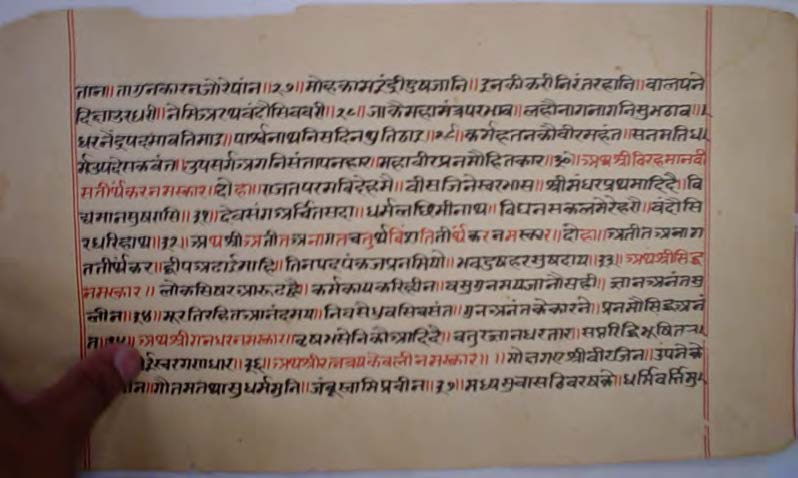 तान॥तागुनकारनजोरेपांन॥२७॥मोहकामरंद्रीदुषजानि॥उनकीकरीनिरंतरहानि॥बालपने
दिछाउरधरी॥नेमिजरथवंदौसिवबरी॥२८॥जाकेमहामंत्रपरभाव॥लहौनागनागनिसुभठाव॥
धरनेंद्रपदमावतिमाउ॥पार्श्वनाथनिसदिनथुतिठाउ॥२९॥कर्महतनकोवीरमहंत॥सतमतिध
र्मउपदेसकवंत॥उपसर्गअगनिसंतापनहार॥महावीरप्रनमौहितकार॥३०॥अथश्रीविरहमानवी
सतीर्थकरनमस्कार॥दोहा॥राजतपरमविदेहमै॥वीसजिनेस्वरभास॥श्रीमंधरप्रथमादिदै॥वि
द्यमानसुषरासि॥३१॥देवसंगअर्चितसदा॥धर्मलछिमीनाथ॥विघनसकलमेरेहरौ॥वंदौसि
रधरिहाथ॥३२॥अथश्रीअतीतअनागतचतुर्थविंशतितीर्थकरनमस्कार॥दोहा॥अतीतअनाग
ततीर्थकर॥द्वीपअढाईमाहि॥तिनपदपंकजप्रनमियो॥भवदुषहरसुषदाय॥३३॥अथश्रीसिद्ध
नमस्कार॥लोकसिषरआरूढहै॥कर्मकायकरिहीन॥वसुगुनमयजानौसही॥ज्ञानअनंतसु
लीन॥३४॥मूरतिरहितआनंदमय॥निवसैध्रुवसिवसंत॥गुनअनंतकेकारने॥प्रनमौसिद्धअनं
त॥अथश्रीगनधरनमस्कार॥वृषभसेनिकोआदिदै॥चतुरज्ञानधरतार॥सप्तरिद्धिभूषित
ईस्वरगणधार॥३६॥अथश्रीरत्नत्रयकेवलीनमस्कार॥॥मोक्षगएश्रीवीरजिन॥उपजेके
गौतमतथासुधर्ममुनि॥जंबूस्वामिप्रवीन॥३७॥मध्यसुबासठिवरषके॥धर्मवर्ति